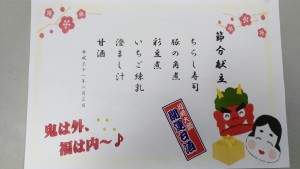 節分献立
ちらし寿司
豚の角煮
彩豆煮
いちご練乳
澄まし汁
甘酒
平成三十一年二月三日
開運甘酒
鬼は外、
福は内～♪